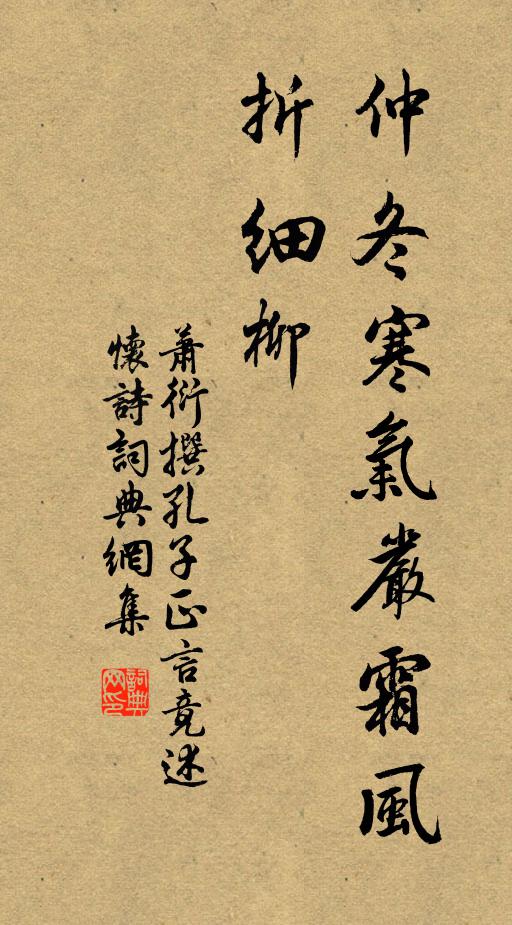 仲冬寒氣嚴霜風
折細柳
蕭衍撰孔子正言竟述
懷詩詞典網集
詞典網印